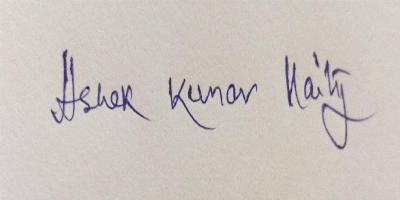 Ashok Kumar Maity